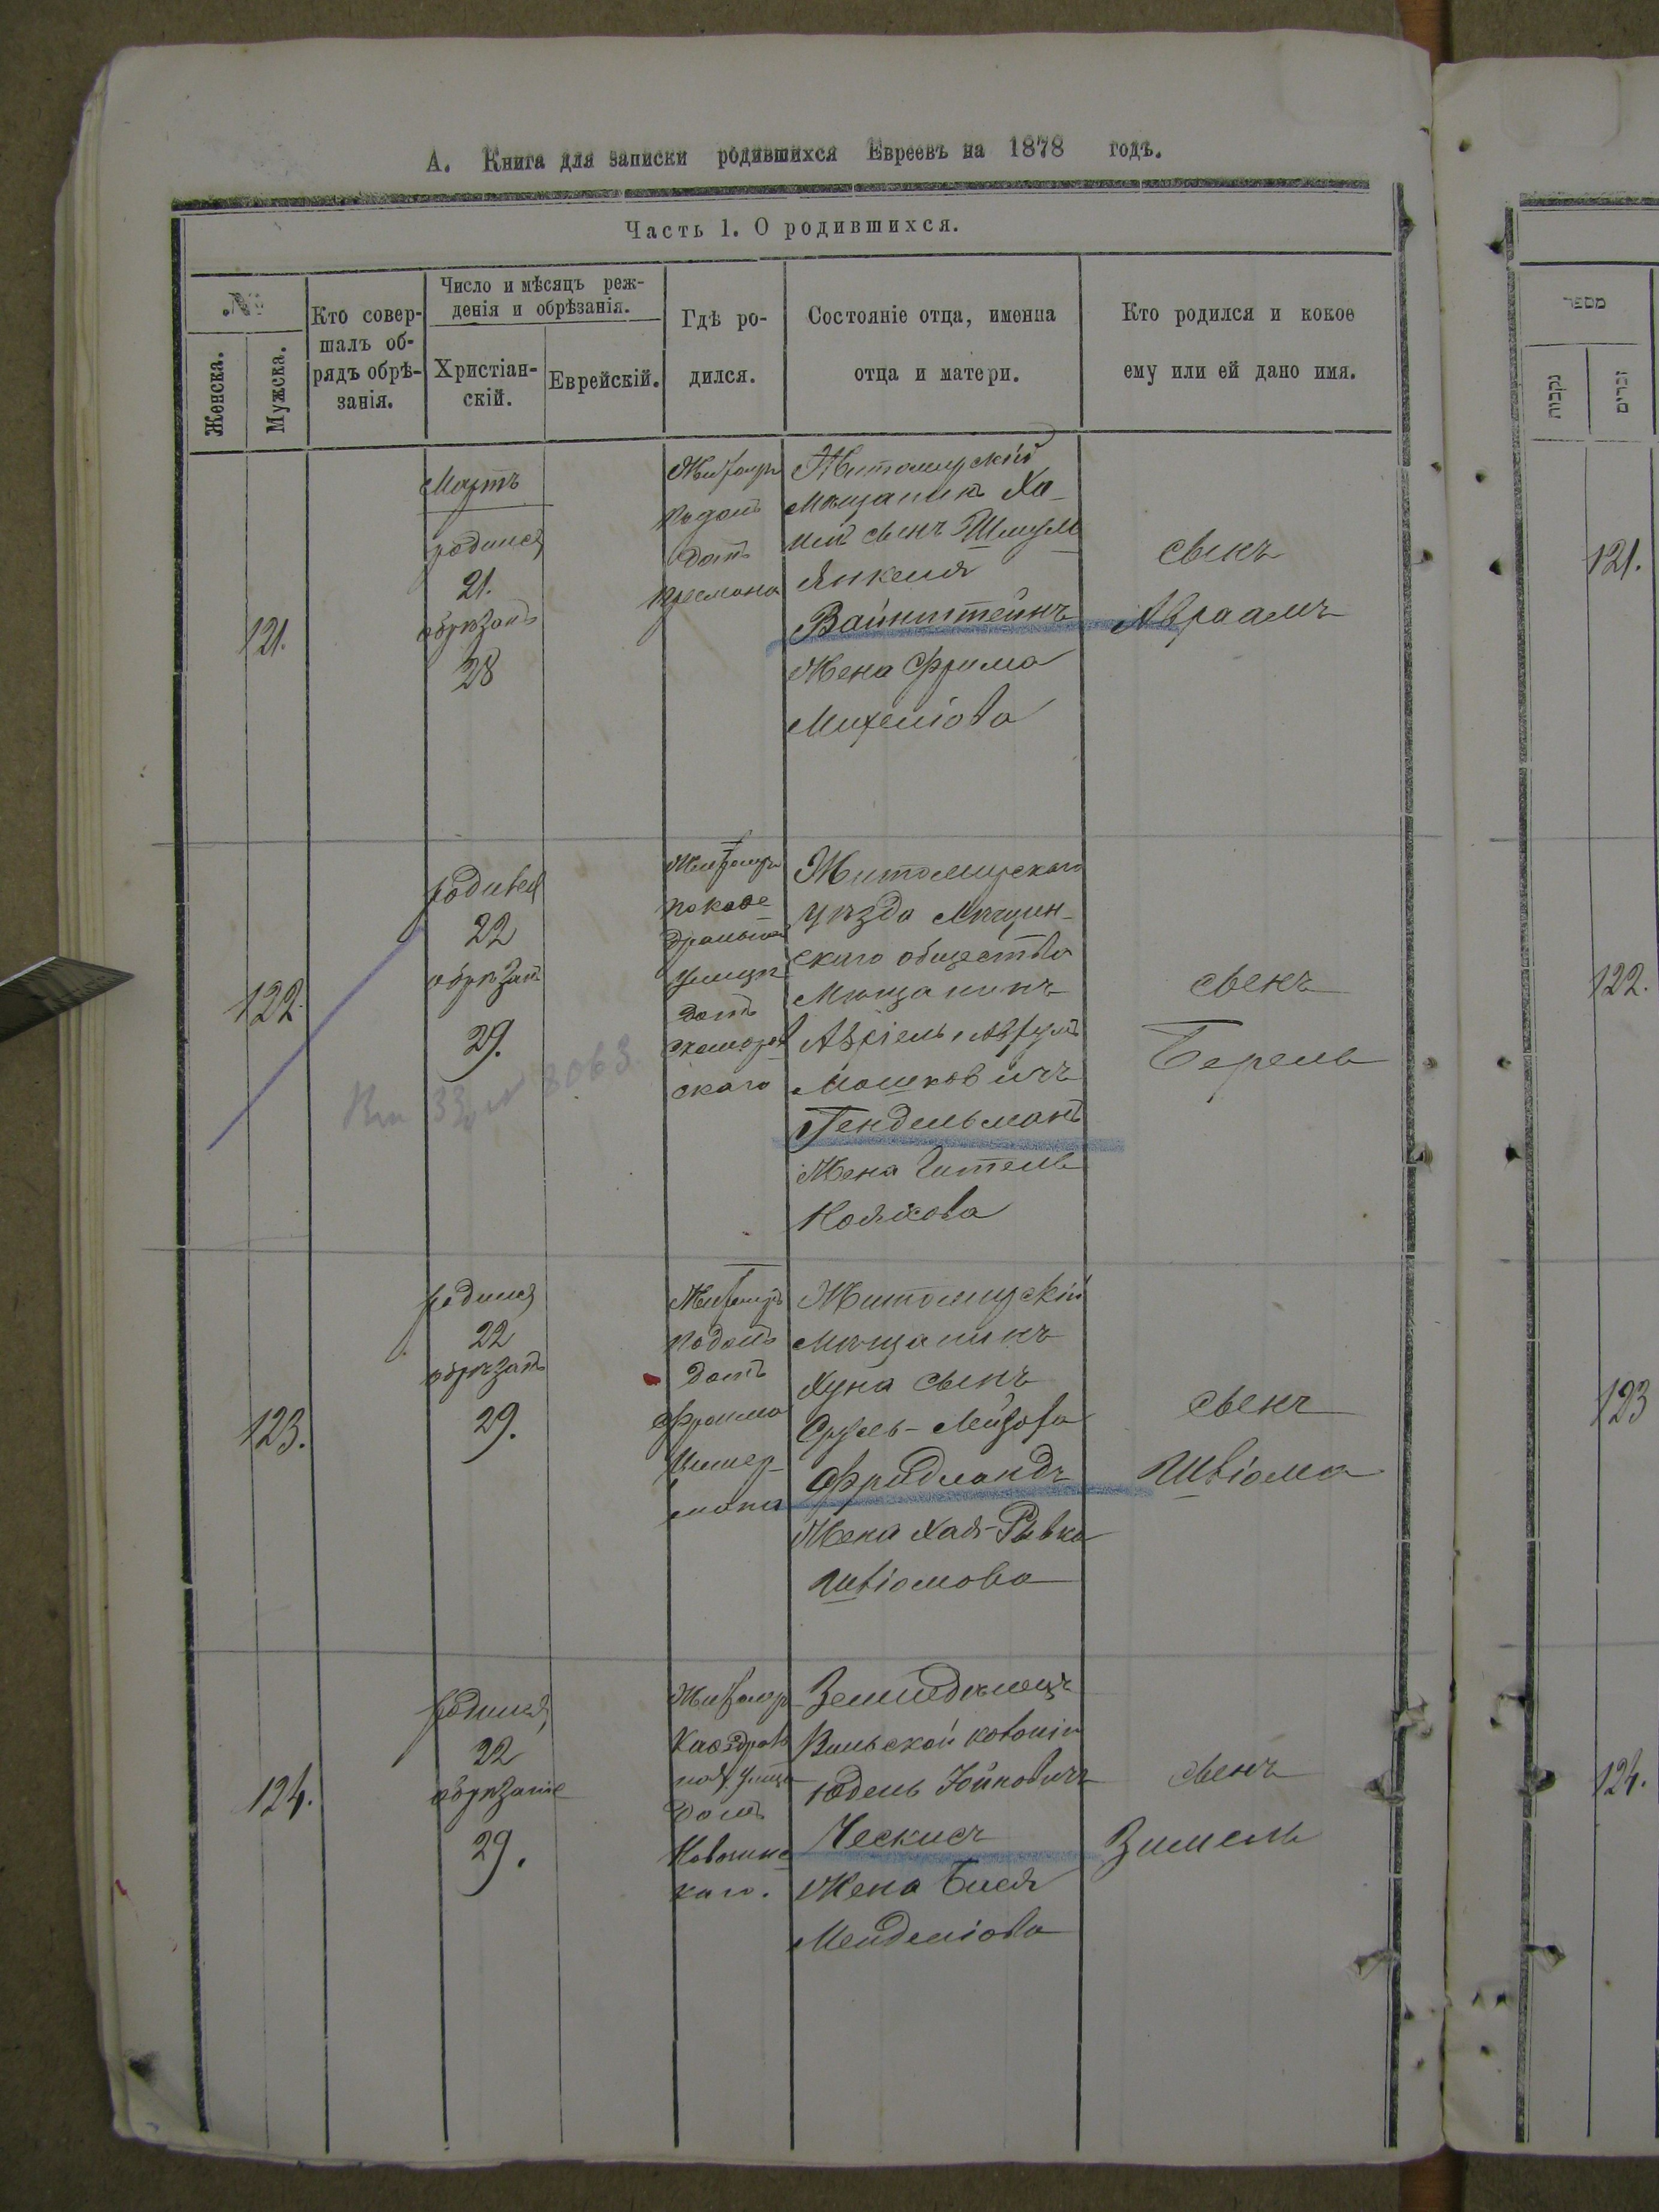 А. Книга для записки родившихся Евреевъ на 1878 годъ.
Часть 1. О родившихся.
№
Женска.
Мужска.
Кто совер-
шалъ об-
рядъ обрѣ-
занія.
Число и мѣсяцъ реж-
денія и обрѣзанія.
Христіан-
скій.
Еврейскій.
Гдѣ ро-
дился.
Состояніе отца, именна
отца и матери.
Кто родился и кокое
ему или ей дано имя.
121.
Мартъ
родился
21.
обрѣзанъ
28
Житомръ
домъ
Житомирскій
Мѣщанинъ Ха-
имъ сынъ Шмуль
Янкеля
Вайнштейнъ
Жена Фрима
Михеліова
сынъ
Авраамъ
122.
родився
22
обрѣзан
29.
Житомръ
по кафе-
дральной
улицѣ
домъ
скаго
Житомирскаго
уѣзда
скаго общества
Мѣщанинъ
Мошковичъ
Гендельманъ
Жена Гитель
сынъ
Берель
123.
родился
22
обрѣзанъ
29.
Житомръ
домъ
Фроима
Житомирскій
мѣщанинъ
Хуна сынъ
Фридландъ
Жена Хая-Рывка
Швіомова
сынъ
Швіома
124.
родился
22
обрѣзание
29.
Житомр
домъ
каго.
Земледѣлецъ
Вильской колоніи
Юдель
Ческисъ
Жена Бися
Менделіова
сынъ
Зимель
מספר
נקבות
זכרים
121.
122.
123
124.